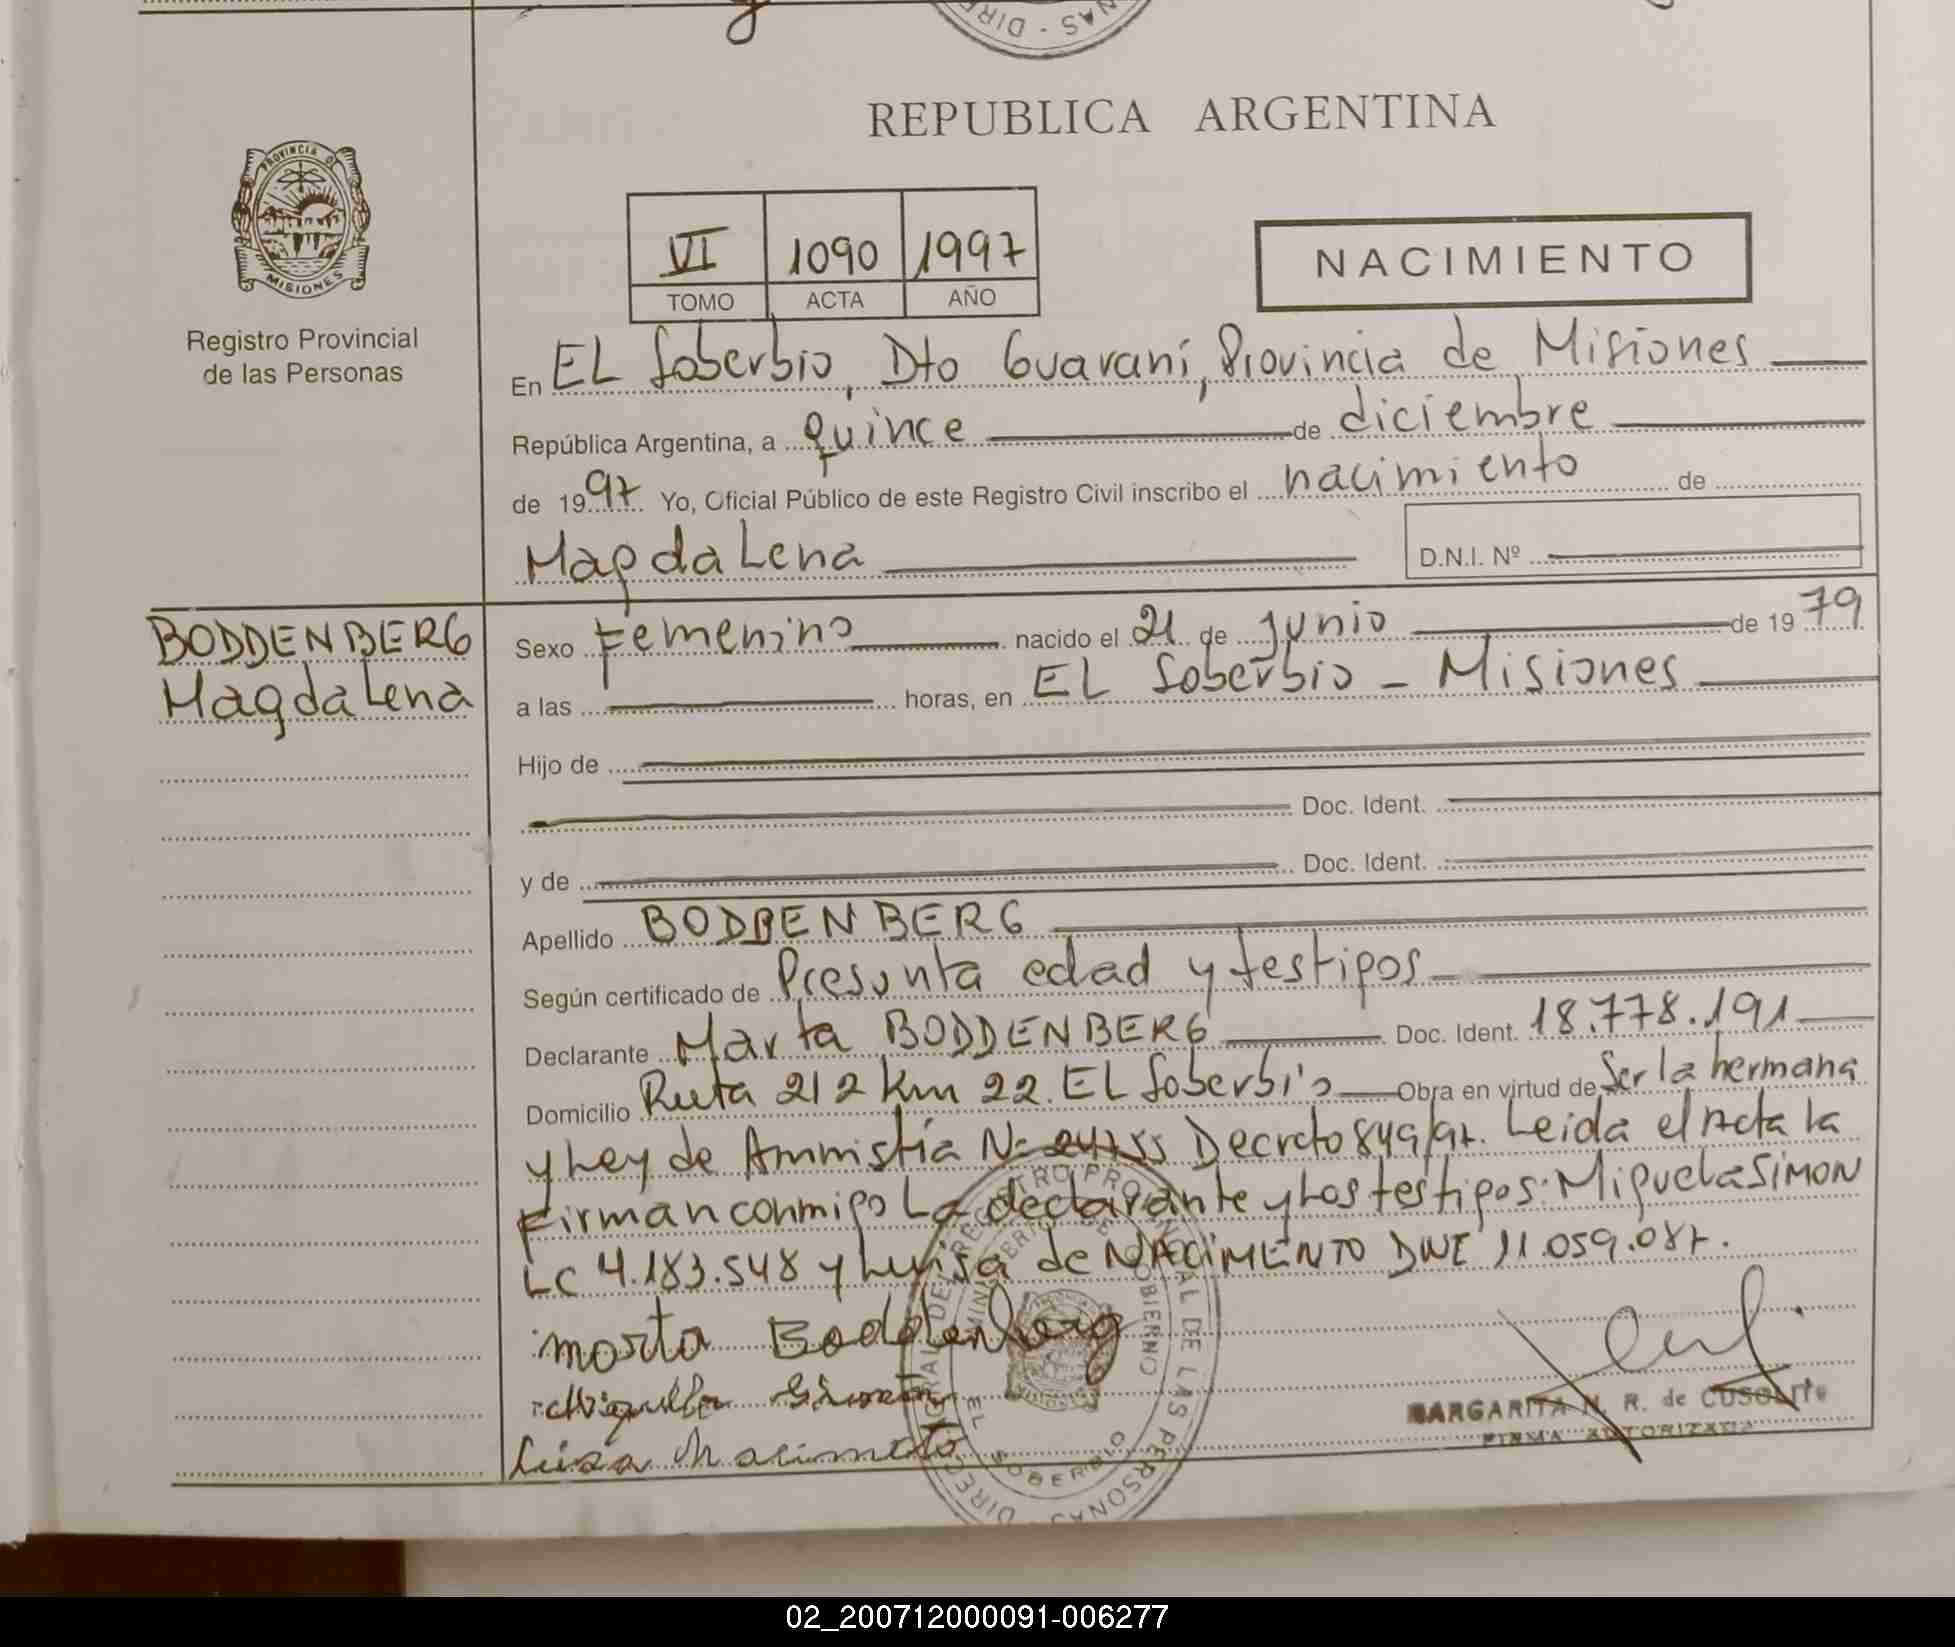 REPUBLICA ARGENTINA
PROVINCIA DE
MISIONES
Registro Provincial
de las Personas
VI 1090 1997
TOMO ACTA AÑO
NACIMIENTO
En EL Soberbio, Dto Guaraní, Provincia de Misiones
República Argentina, a quince de diciembre
de 1997 Yo, Oficial Público de este Registro Civil inscribo el nacimiento de
Magdalena D.N.I. Nº
BODDENBERG
Magdalena
Sexo Femenino nacido el 21 de Junio de 1979
a las horas, en EL Soberbio - Misiones
Hijo de
Doc. Ident.
y de Doc. Ident.
Apellido BODDENBERG
Según certificado de Presunta edad y testigos
Declarante Marta BODDENBERG Doc. Ident. 18.778.191
Domicilio Ruta 212 Km 22. EL Soberbio Obra en virtud de Ser la hermana
y Ley de Ammistía Nº 24755 Decreto 849/97. Leida el Acta la
Firman conmigo La declarante y Los testigos: Miguela SIMON
LC 4.183.548 y Luisa de NACIMENTO DNE 11.059.087.
marta Boddenberg
Luisa Nacimento
MARGARITA N. R. de
FIRMA AUTORIZADA
EL SOBERBIO
02_200712000091-006277